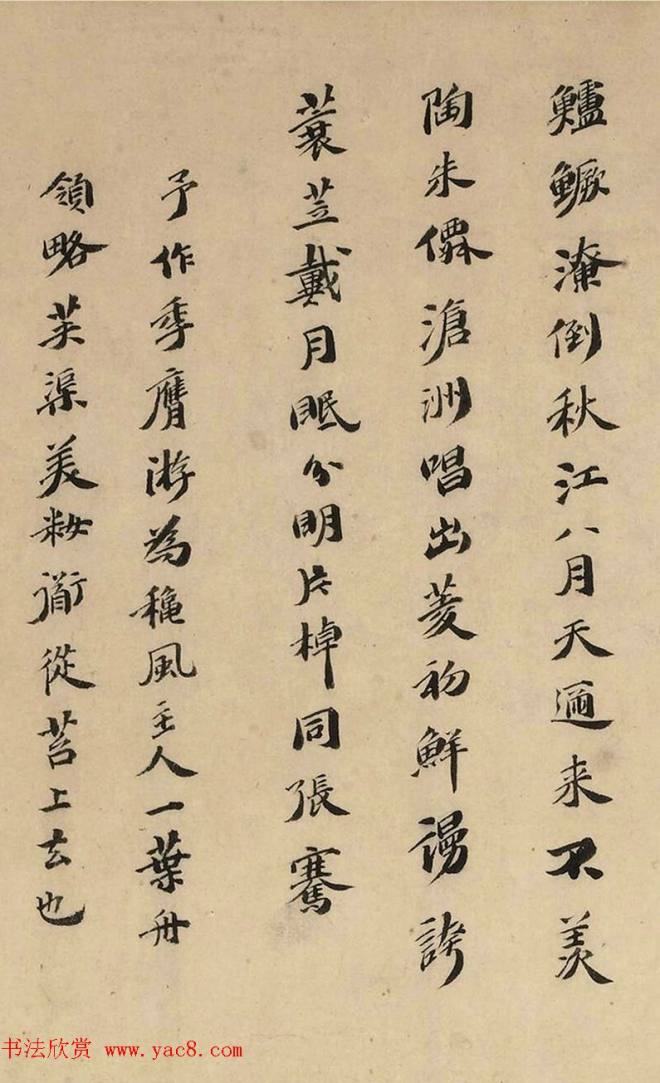 鱸鱖潦倒秋江八月天邇来不羡
陶朱僊滄洲唱出菱初鮮謾誇
蓑笠戴月眠分明片棹同張騫
予作季鷹游為龝風主人一葉舟
領略芙渠美粧衜從苕上去也
书法欣赏 www.yac8.com